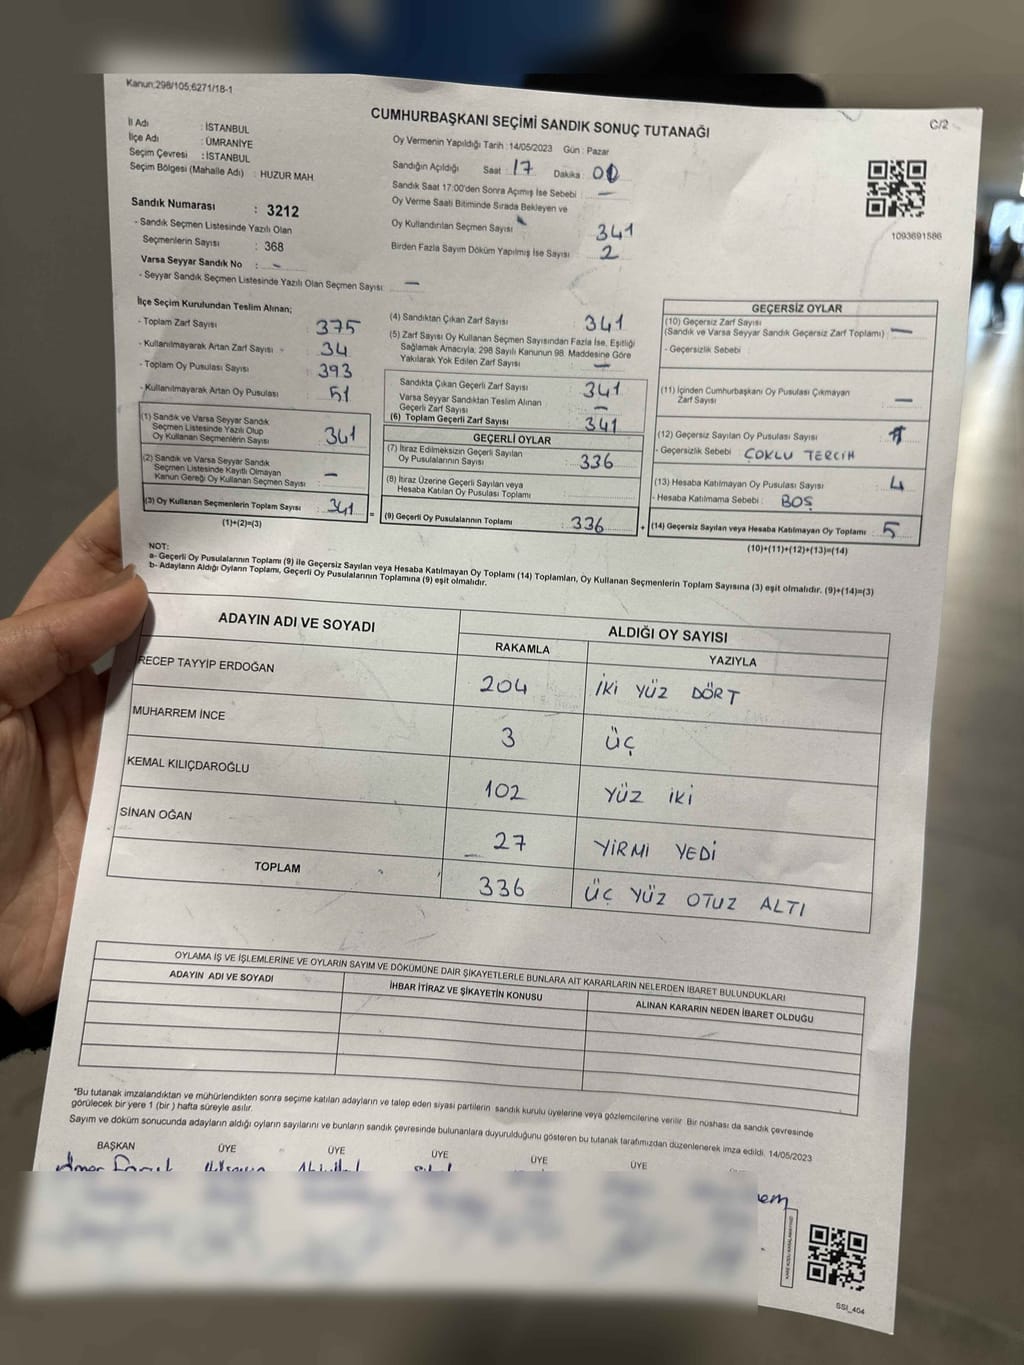 Kanun:298/105,6271/18-1
C/2
CUMHURBAŞKANI SEÇİMİ SANDIK SONUÇ TUTANAĞI
İl Adı : İSTANBUL
İlçe Adı : ÜMRANİYE
Seçim Çevresi : İSTANBUL
Seçim Bölgesi (Mahalle Adı) : HUZUR MAH.
Sandık Numarası : 3212
- Sandık Seçmen Listesinde Yazılı Olan
Seçmenlerin Sayısı : 368
Varsa Seyyar Sandık No : -
- Seyyar Sandık Seçmen Listesinde Yazılı Olan Seçmen Sayısı : —
Oy Vermenin Yapıldığı Tarih : 14/05/2023 Gün : Pazar
Sandığın Açıldığı Saat : 17 Dakika : 00
Sandık Saat 17:00'den Sonra Açımış İse Sebebi : —
Oy Verme Saati Bitiminde Sırada Bekleyen ve
Oy Kullandırılan Seçmen Sayısı : 341
Birden Fazla Sayım Döküm Yapılmış İse Sayısı : 2
1093691586
İlçe Seçim Kurulundan Teslim Alınan;
- Toplam Zarf Sayısı : 375
- Kullanılmayarak Artan Zarf Sayısı : 34
- Toplam Oy Pusulası Sayısı : 393
- Kullanılmayarak Artan Oy Pusulası : 51
(1) Sandık ve Varsa Seyyar Sandık
Seçmen Listesinde Yazılı Olup
Oy Kullanan Seçmenlerin Sayısı : 341
(2) Sandık ve Varsa Seyyar Sandık
Seçmen Listesinde Kayıtlı Olmayan
Kanun Gereği Oy Kullanan Seçmen Sayısı : —
(3) Oy Kullanan Seçmenlerin Toplam Sayısı : 341
(1)+(2)=(3)
(4) Sandıktan Çıkan Zarf Sayısı : 341
(5) Zarf Sayısı Oy Kullanan Seçmen Sayısından Fazla İse, Eşitliği
Sağlamak Amacıyla, 298 Sayılı Kanunun 98. Maddesine Göre
Yakılarak Yok Edilen Zarf Sayısı : —
Sandıkta Çıkan Geçerli Zarf Sayısı : 341
Varsa Seyyar Sandıktan Teslim Alınan
Geçerli Zarf Sayısı : —
(6) Toplam Geçerli Zarf Sayısı : 341
GEÇERLİ OYLAR
(7) İtiraz Edilmeksizin Geçerli Sayılan
Oy Pusulalarının Sayısı : 336
(8) İtiraz Üzerine Geçerli Sayılan veya
Hesaba Katılan Oy Pusulası Toplamı :
= (9) Geçerli Oy Pusulalarının Toplamı : 336
GEÇERSİZ OYLAR
(10) Geçersiz Zarf Sayısı
(Sandık ve Varsa Seyyar Sandık Geçersiz Zarf Toplamı) : —
- Geçersizlik Sebebi :
(11) İçinden Cumhurbaşkanı Oy Pusulası Çıkmayan
Zarf Sayısı : —
(12) Geçersiz Sayılan Oy Pusulası Sayısı :
- Geçersizlik Sebebi : ÇOKLU TERCİH
(13) Hesaba Katılmayan Oy Pusulası Sayısı : 4
- Hesaba Katılmama Sebebi : BOŞ
+ (14) Geçersiz Sayılan veya Hesaba Katılmayan Oy Toplamı : 5
(10)+(11)+(12)+(13)=(14)
NOT:
a- Geçerli Oy Pusulalarının Toplamı (9) ile Geçersiz Sayılan veya Hesaba Katılmayan Oy Toplamı (14) Toplamları, Oy Kullanan Seçmenlerin Toplam Sayısına (3) eşit olmalıdır. (9)+(14)=(3)
b- Adayların Aldığı Oyların Toplamı, Geçerli Oy Pusulalarının Toplamına (9) eşit olmalıdır.
ADAYIN ADI VE SOYADI ALDIĞI OY SAYISI
RAKAMLA YAZIYLA
RECEP TAYYİP ERDOĞAN 204 İKİ YÜZ DÖRT
MUHARREM İNCE 3 ÜÇ
KEMAL KILIÇDAROĞLU 102 YÜZ İKİ
SİNAN OĞAN 27 YİRMİ YEDİ
TOPLAM 336 ÜÇ YÜZ OTUZ ALTI
OYLAMA İŞ VE İŞLEMLERİNE VE OYLARIN SAYIM VE DÖKÜMÜNE DAİR ŞİKAYETLERLE BUNLARA AİT KARARLARIN NELERDEN İBARET BULUNDUKLARI
ADAYIN ADI VE SOYADI İHBAR İTİRAZ VE ŞİKAYETİN KONUSU ALINAN KARARIN NEDEN İBARET OLDUĞU
*Bu tutanak imzalandıktan ve mühürlendikten sonra seçime katılan adayların ve talep eden siyasi partilerin sandık kurulu üyelerine veya gözlemcilerine verilir. Bir nüshası da sandık çevresinde
görülecek bir yere 1 (bir ) hafta süreyle asılır.
Sayım ve döküm sonucunda adayların aldığı oyların sayılarını ve bunların sandık çevresinde bulunanlara duyurulduğunu gösteren bu tutanak tarafımızdan düzenlenerek imza edildi. 14/05/2023
BAŞKAN ÜYE ÜYE ÜYE ÜYE ÜYE
SSI_404